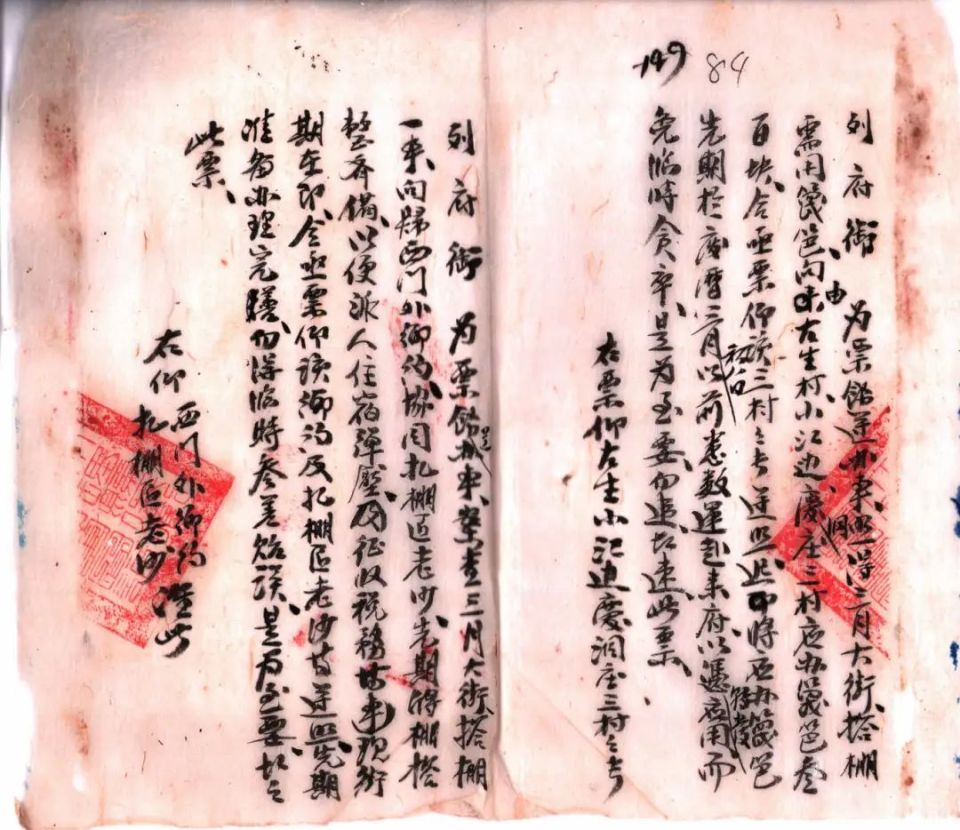 149 84
列府衔 为票饬遵办事照得三月大街搭棚
需用篾笆向由左生村小江边庆洞庄三村应办篾笆叁
百块合亟票仰该三村之吉遵照迅即将应办篾笆
先期于废历二月以前悉数运赴来府以凭应用而
免临时贪卒是为至要勿违切速此票
右票仰左生小江边庆洞庄三村之吉
列府衔 为票饬遵办事案查三月大街搭棚
一事向归西门外乡约协同扎棚匠老沙先期将棚搭
整齐备以便派人住宿弹压及征收税务等事现街
期在即合亟票仰该乡约及扎棚匠老沙等遵照先期
准备办理完臻勿得临时参差贻误是为至要切之
此票
右仰西门外乡约
扎棚匠老沙 准此